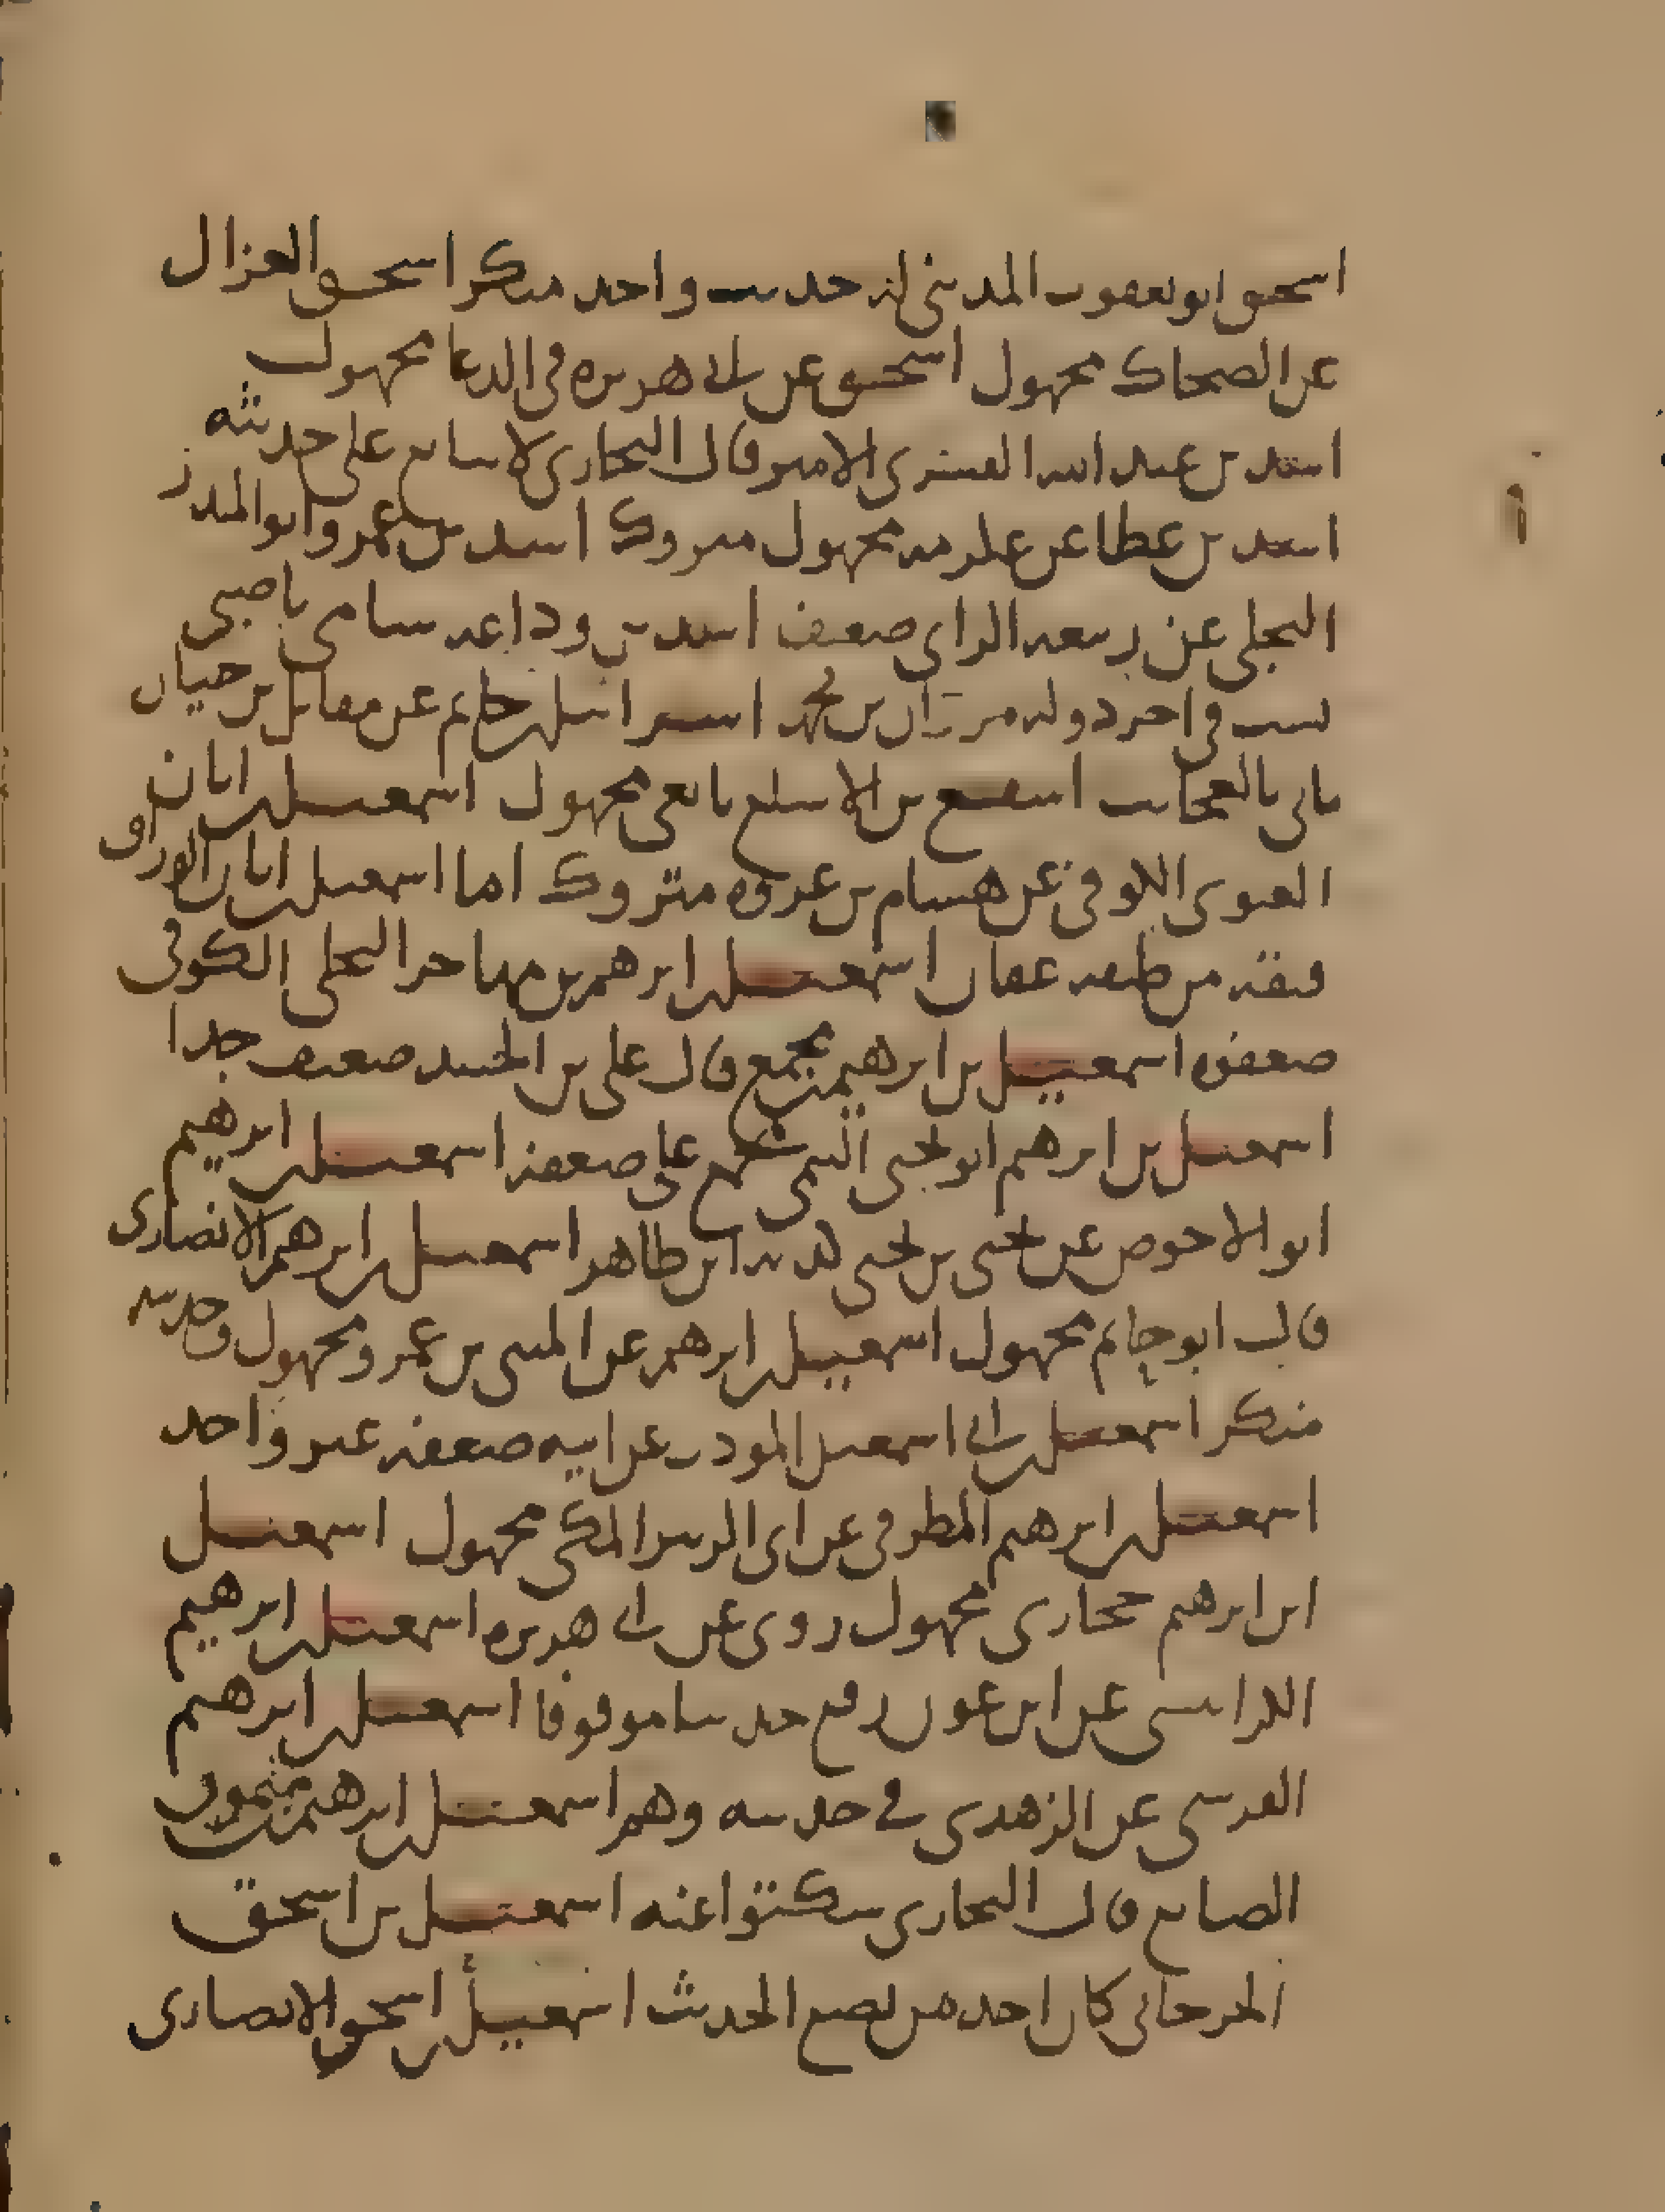 اسحق ابو يعقوب المدني له حديث واحد منكر اسحق الغزال
عن الضحاك مجهول اسحق عن ابي هريرة في الدعا مجهول
اسد بن عبد الله القسري الامير قال البخاري لا يتابع على حديثه
اسد بن عطا عن عكرمه مجهول متروك اسد بن عمرو ابو المنذر
البجلي عن ربيعه الراي ضعيف اسد بن وداعه شامي ناصبي
سب في اخر دوله مروان بن محمد اسرائيل بن حاتم عن مقاتل بن حيان
ياتي بالعجائب اسقع بن الاسلع تابعي مجهول اسمعيل بن ابان
الغنوي الكوفي عن هشام بن عروه متروك اما اسمعيل بن ابان الوراق
فثقه من طبقه عفان اسمعيل بن ابرهيم بن مهاجر البجلي الكوفي
ضعفوه اسمعيل بن ابرهيم بن مجمع قال علي بن الجنيد ضعيف جدا
اسمعيل بن ابرهيم ابو يحيى التيمي ضعفه اسمعيل بن ابرهيم
ابو الاحوص عن يحيى بن يحيى كذبه ابن طاهر اسمعيل بن ابرهيم الانصاري
قال ابو حاتم مجهول اسمعيل بن ابرهيم عن المثنى بن عمرو مجهول وحديثه
منكر اسمعيل بن ابي اسمعيل المودب عن ابيه ضعفه غير واحد
اسمعيل بن ابرهيم المطرقي عن ابي الزبير المكي مجهول اسمعيل
ابن ابرهيم حجازي مجهول روى عن ابي هريره اسمعيل بن ابرهيم
الكرابيسي عن ابن عون رفع حديثا موقوفا اسمعيل بن ابرهيم
القرشي عن الزهري في حديثه وهم اسمعيل بن ابرهيم بن ميمون
الصايغ قال البخاري سكتوا عنه اسمعيل بن اسحق
الجرجاني كان احد من يضع الحديث اسمعيل بن اسحق الانصاري